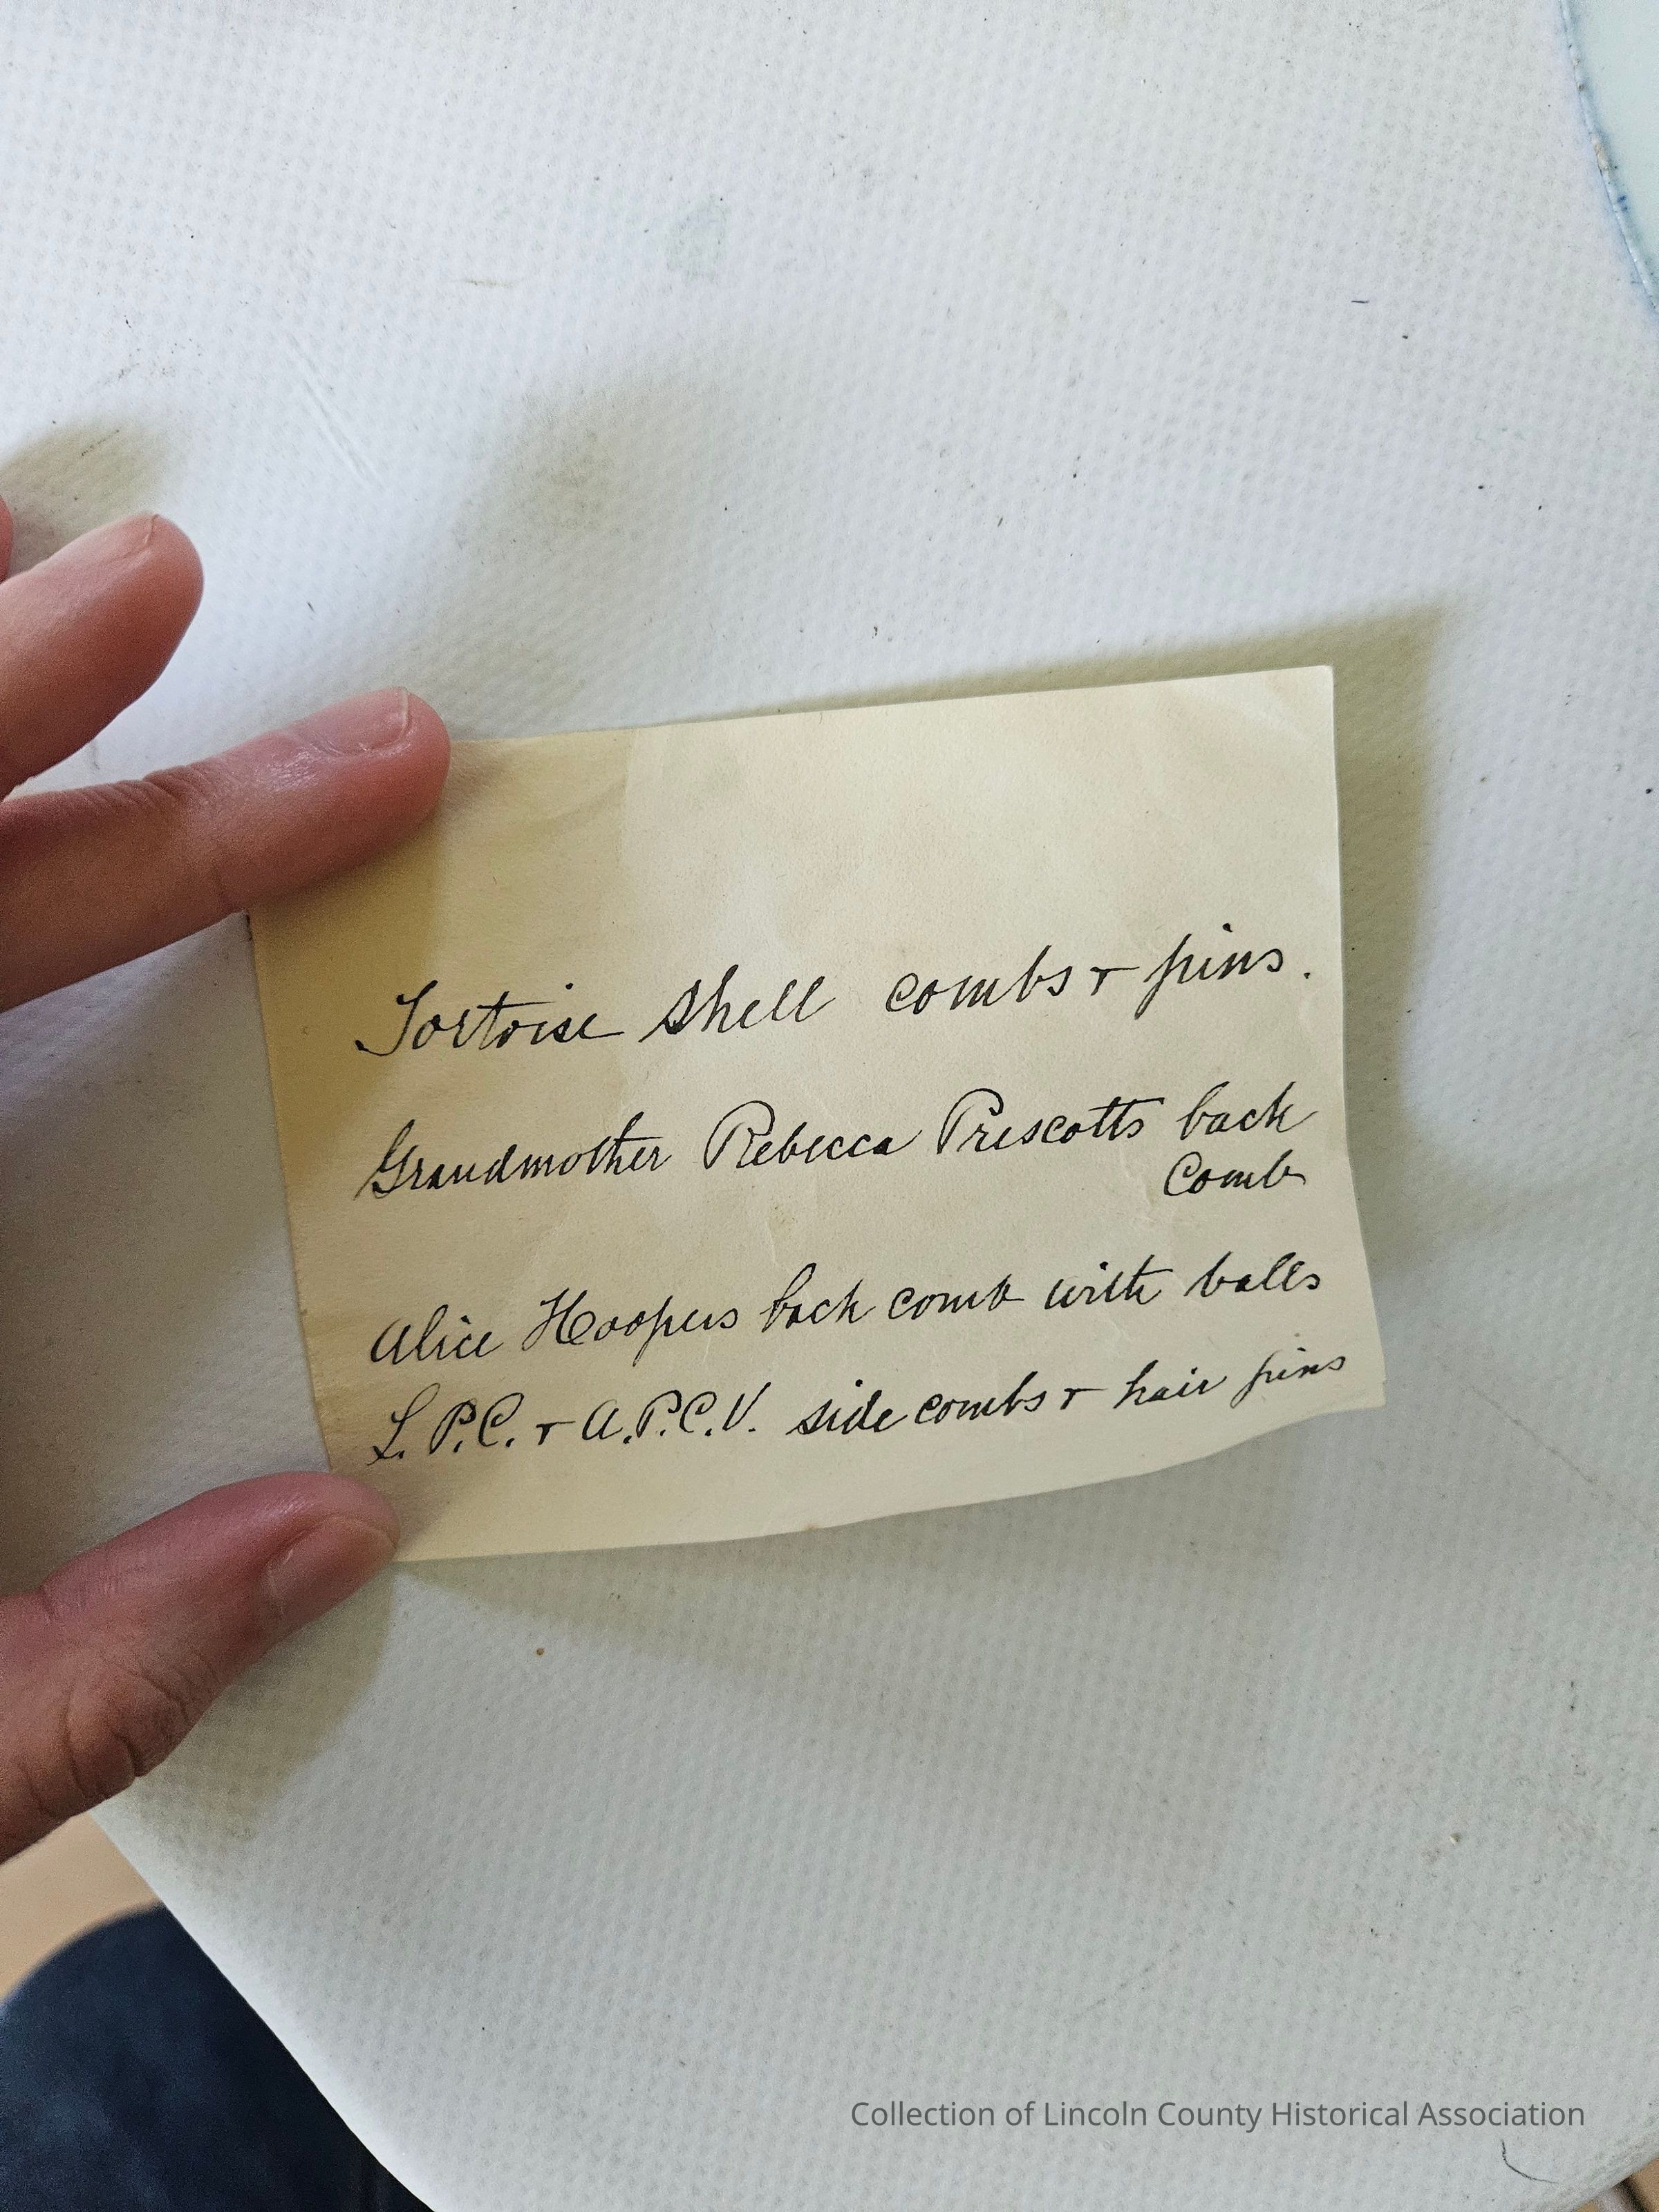 Tortoise shell combs & pins.
Grandmother Rebecca Prescotts back
Comb
Alice Hoopers back comb with balls
L. P.C. & A.P.C.V. side combs & hair pins
Collection of Lincoln County Historical Association